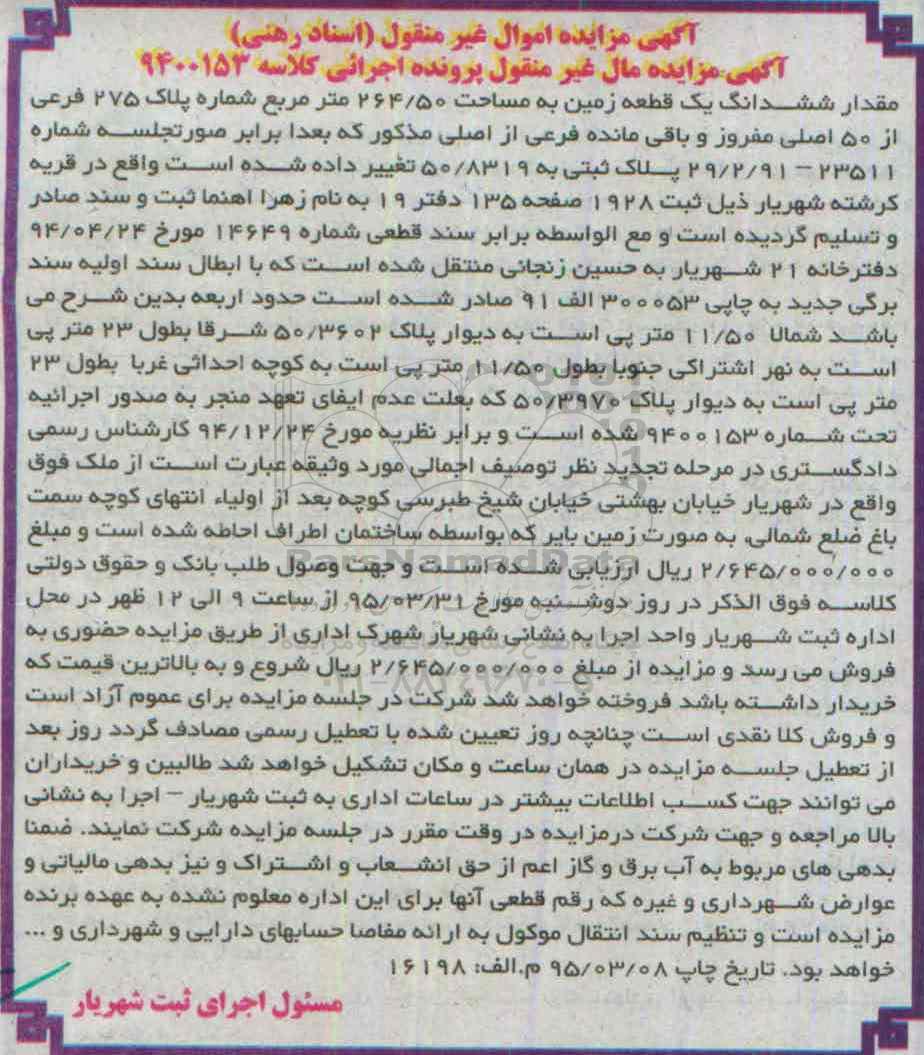 آگهی مزایده اموال غیر منقول (اسناد رهنی)
آگهی مزایده مال غیر منقول پرونده اجرائی کلاسه ۹۴۰۰۱۵۳
مقدار ششدانگ یک قطعه زمین به مساحت ۲۶۴/۵۰ متر مربع شماره پلاک ۲۷۵ فرعی
از ۵۰ اصلی مفروز و باقی مانده فرعی از اصلی مذکور که بعدا برابر صورتجلسه شماره
۲۳۵۱۱ – ۲۹/۲/۹۱ پلاک ثبتی به ۵۰/۸۳۱۹ تغییر داده شده است واقع در قریه
کرشته شهریار ذیل ثبت ۱۹۲۸ صفحه ۱۳۵ دفتر ۱۹ به نام زهرا اهنما ثبت و سند صادر
و تسلیم گردیده است و مع الواسطه برابر سند قطعی شماره ۱۴۶۴۹ مورخ ۹۴/۰۴/۲۴
دفترخانه ۲۱ شهریار به حسین زنجانی منتقل شده است که با ابطال سند اولیه سند
برگی جدید به چاپی ۳۰۰۰۵۳ الف ۹۱ صادر شده است حدود اربعه بدین شرح می
باشد شمالا ۱۱/۵۰ متر پی است به دیوار پلاک ۵۰/۳۶۰۲ شرقا بطول ۲۳ متر پی
است به نهر اشتراکی جنوبا بطول ۱۱/۵۰ متر پی است به کوچه احداثی غربا بطول ۲۳
متر پی است به دیوار پلاک ۵۰/۳۹۷۰ که بعلت عدم ایفای تعهد منجر به صدور اجرائیه
تحت شماره ۹۴۰۰۱۵۳ شده است و برابر نظریه مورخ ۹۴/۱۲/۲۴ کارشناس رسمی
دادگستری در مرحله تجدید نظر توصیف اجمالی مورد وثیقه عبارت است از ملک فوق
واقع در شهریار خیابان بهشتی خیابان شیخ طبرسی کوچه بعد از اولیاء انتهای کوچه سمت
باغ ضلع شمالی، به صورت زمین بایر که بواسطه ساختمان اطراف احاطه شده است و مبلغ
۲/۶۴۵/۰۰۰/۰۰۰ ریال ارزیابی شده است و جهت وصول طلب بانک و حقوق دولتی
کلاسه فوق الذکر در روز دوشنبه مورخ ۹۵/۰۳/۳۱ از ساعت ۹ الی ۱۲ ظهر در محل
اداره ثبت شهریار واحد اجرا به نشانی شهریار شهرک اداری از طریق مزایده حضوری به
فروش می رسد و مزایده از مبلغ ۲/۶۴۵/۰۰۰/۰۰۰ ریال شروع و به بالاترین قیمت که
خریدار داشته باشد فروخته خواهد شد شرکت در جلسه مزایده برای عموم آزاد است
و فروش کلا نقدی است چنانچه روز تعیین شده با تعطیل رسمی مصادف گردد روز بعد
از تعطیل جلسه مزایده در همان ساعت و مکان تشکیل خواهد شد طالبین و خریداران
می توانند جهت کسب اطلاعات بیشتر در ساعات اداری به ثبت شهریار – اجرا به نشانی
بالا مراجعه و جهت شرکت درمزایده در وقت مقرر در جلسه مزایده شرکت نمایند. ضمنا
بدهی های مربوط به آب برق و گاز اعم از حق انشعاب و اشتراک و نیز بدهی مالیاتی و
عوارض شهرداری و غیره که رقم قطعی آنها برای این اداره معلوم نشده به عهده برنده
مزایده است و تنظیم سند انتقال موکول به ارائه مفاصا حسابهای دارایی و شهرداری و ...
خواهد بود. تاریخ چاپ ۹۵/۰۳/۰۸ م.الف: ۱۶۱۹۸
مسئول اجرای ثبت شهریار
ParsNamadData